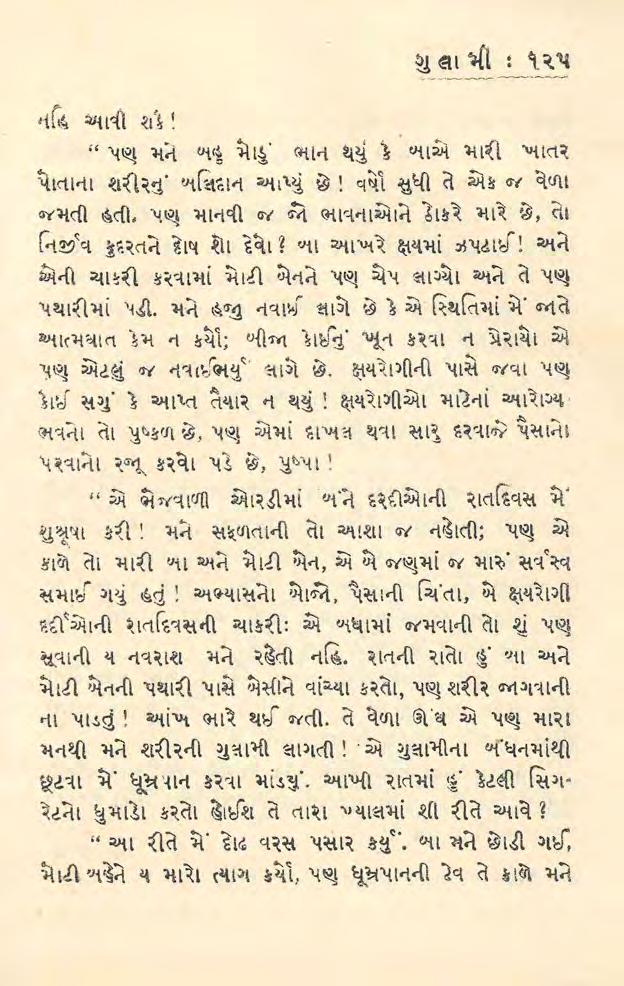 ગુલામી : ૧૨૫
નહિ આવી શકે!
“ પણ મને બહુ મોડું ભાન થયું કે બાએ મારી ખાતર
પોતાના શરીરનું બલિદાન આપ્યું છે! વર્ષો સુધી તે એક જ વેળા
જમતી હતી. પણ માનવી જ જો ભાવનાઓને ઠોકરે મારે છે, તો
નિર્જીવ કુદરતને દોષ શો દેવો? બા આખરે ક્ષયમાં ઝપટાઈ! અને
એની ચાકરી કરવામાં મોટી બેનને પણ ચેપ લાગ્યો અને તે પણ
પથારીમાં પડી. મને હજુ નવાઈ લાગે છે કે એ સ્થિતિમાં મેં જાતે
આત્મઘાત કેમ ન કર્યો; બીજા કોઈનું ખૂન કરવા ન પ્રેરાયો એ
પણ એટલું જ નવાઈભર્યું લાગે છે. ક્ષયરોગીની પાસે જવા પણ
કોઈ સગું કે આપ્ત તૈયાર ન થયું! ક્ષયરોગીઓ માટેનાં આરોગ્ય-
ભવનો તો પુષ્કળ છે, પણ એમાં દાખલ થવા સારુ દરવાજે પૈસાનો
પરવાનો રજૂ કરવો પડે છે, પુષ્પા!
“ એ ભેજવાળી ઓરડીમાં બંને દરદીઓની રાતદિવસ મેં
શુશ્રૂષા કરી! મને સફળતાની તો આશા જ નહોતી; પણ એ
કાળે તો મારી બા અને મોટી બેન, એ બે જણમાં જ મારું સર્વસ્વ
સમાઈ ગયું હતું! અભ્યાસનો બોજો, પૈસાની ચિંતા, બે ક્ષયરોગી
દર્દીઓની રાતદિવસની ચાકરી: એ બધામાં જમવાની તો શું પણ
સૂવાની ય નવરાશ મને રહેતી નહિ. રાતની રાતો હું બા અને
મોટી બેનની પથારી પાસે બેસીને વાંચ્યા કરતો, પણ શરીર જાગવાની
ના પાડતું! આંખ ભારે થઈ જતી. તે વેળા ઊંઘ એ પણ મારા
મનથી મને શરીરની ગુલામી લાગતી! એ ગુલામીના બંધનમાંથી
છૂટવા મેં ધૂમ્રપાન કરવા માંડયું. આખી રાતમાં હું કેટલી સિગ-
રેટનો ધુમાડો કરતો હોઈશ તે તારા ખ્યાલમાં શી રીતે આવે?
“ આ રીતે મેં દોઢ વરસ પસાર કર્યું. બા મને છોડી ગઈ,
મોટી બહેને ય મારો ત્યાગ કર્યો, પણ ધૂમ્રપાનની ટેવ તે કાળે મને